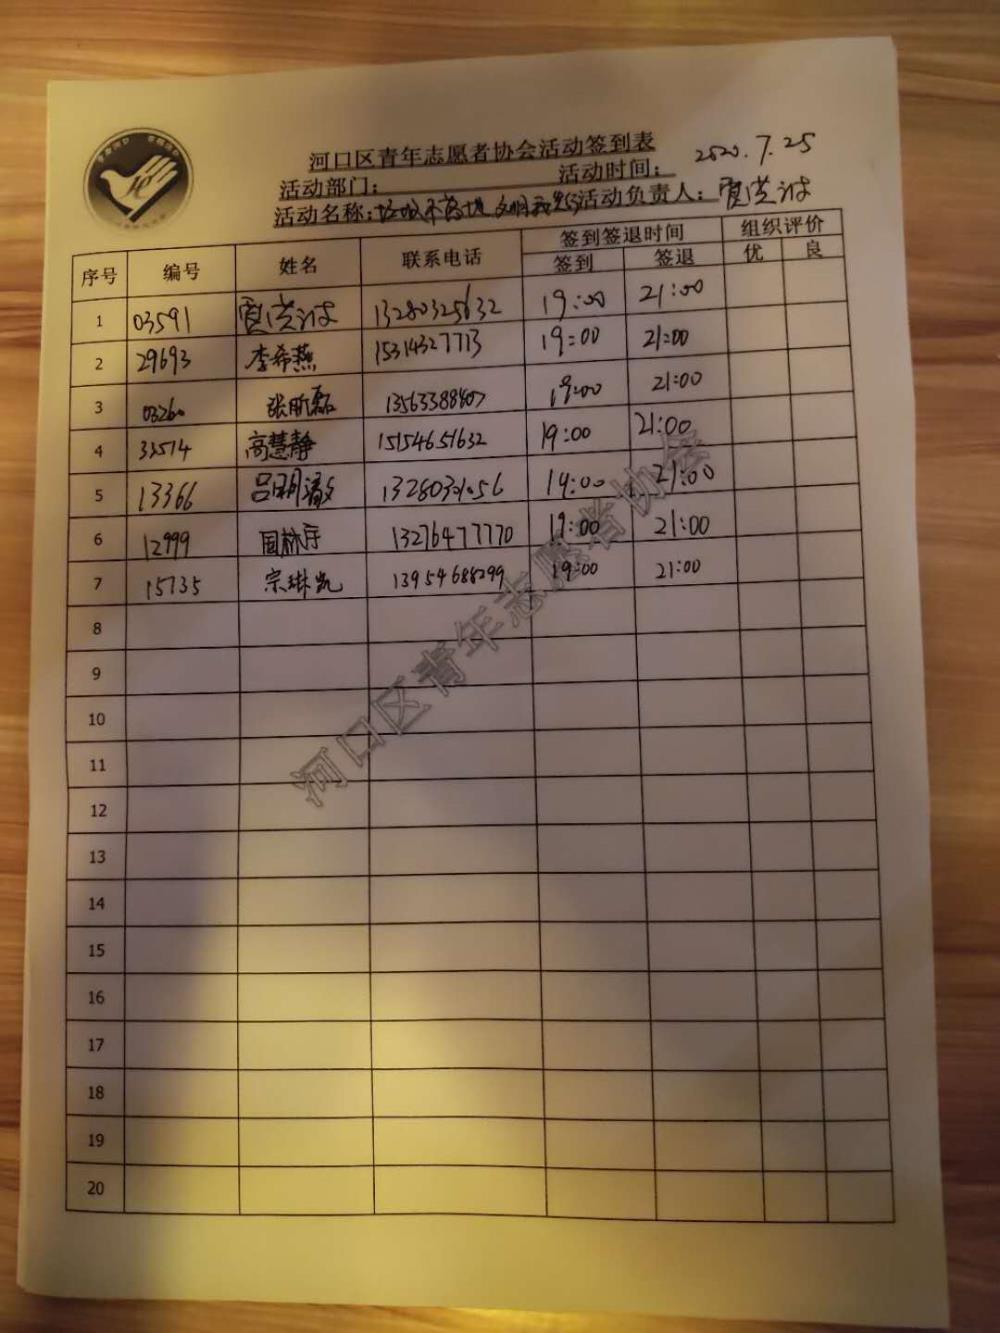 河口区青年志愿者协会活动签到表
活动部门： 活动时间： 2020.7.25
活动名称： 活动负责人：
序号 编号 姓名 联系电话 签到签退时间 组织评价
签到 签退 优 良
1 03591 13280325632 19:00 21:00
2 29693 李希燕 15314327713 19:00 21:00
3 03260 张昕磊 13563388407 19:00 21:00
4 33514 高慧静 15154651632 19:00 21:00
5 13366 19:00 21:00
6 12999 13276477770 19:00 21:00
7 15735 宗琳凯 13954688299 19:00 21:00
8
9
10
11
12
13
14
15
16
17
18
19
20
河口区青年志愿者协会